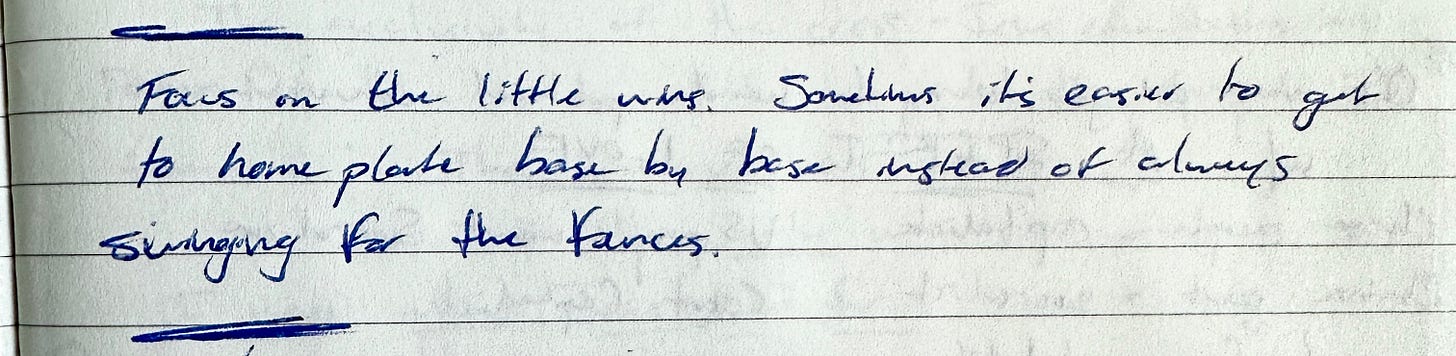 Focus on the little wins. Sometimes it's easier to get
to home plate base by base instead of always
swinging for the fences.